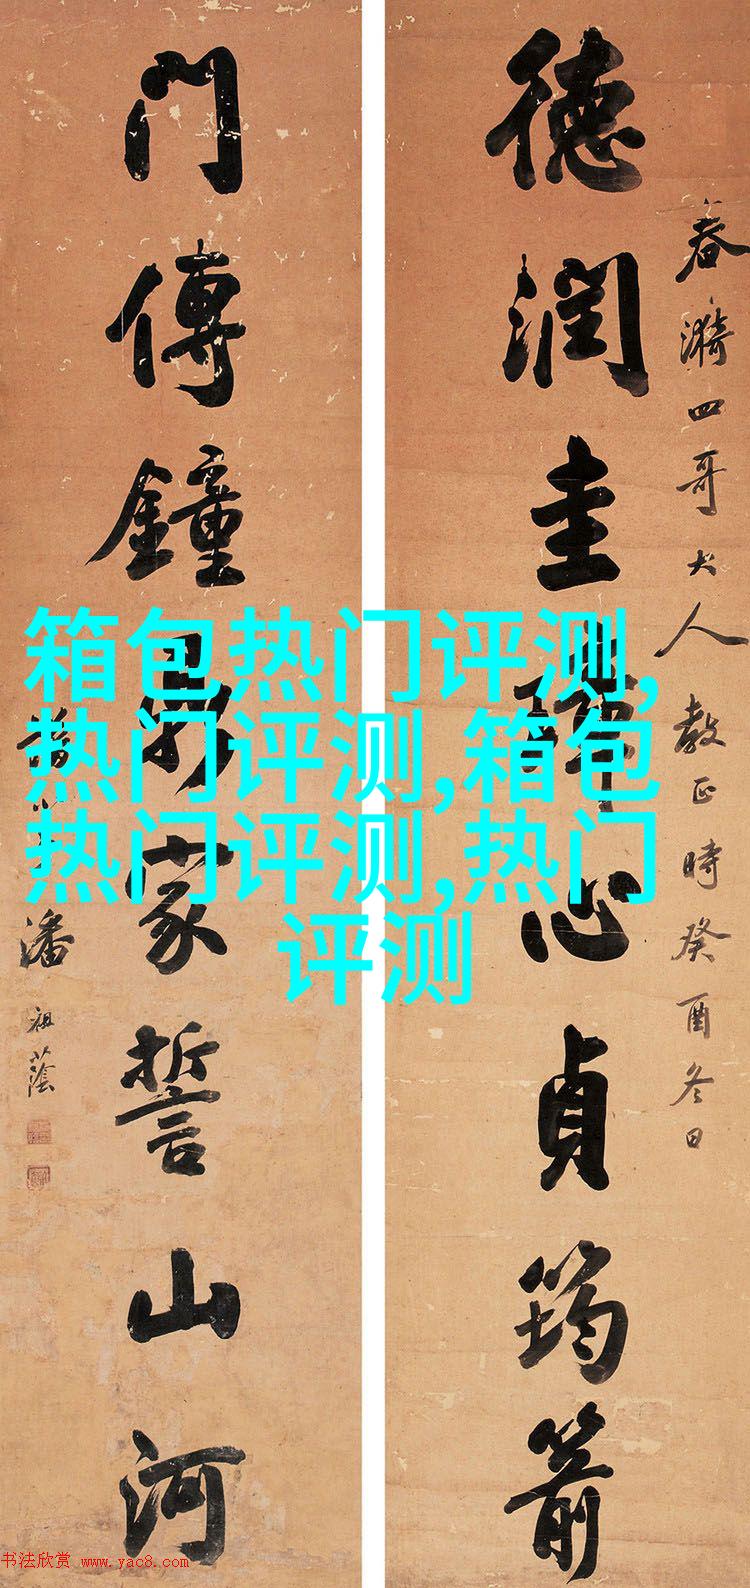 春漪四哥大人教正時癸酉冬日
德潤圭璋心貞筠箭
門傳鐘鼎家誓山河
潘祖蔭
箱包热门评测,
热门评测,箱包
热门评测,热门
评测
书法欣赏 www.yac8.com